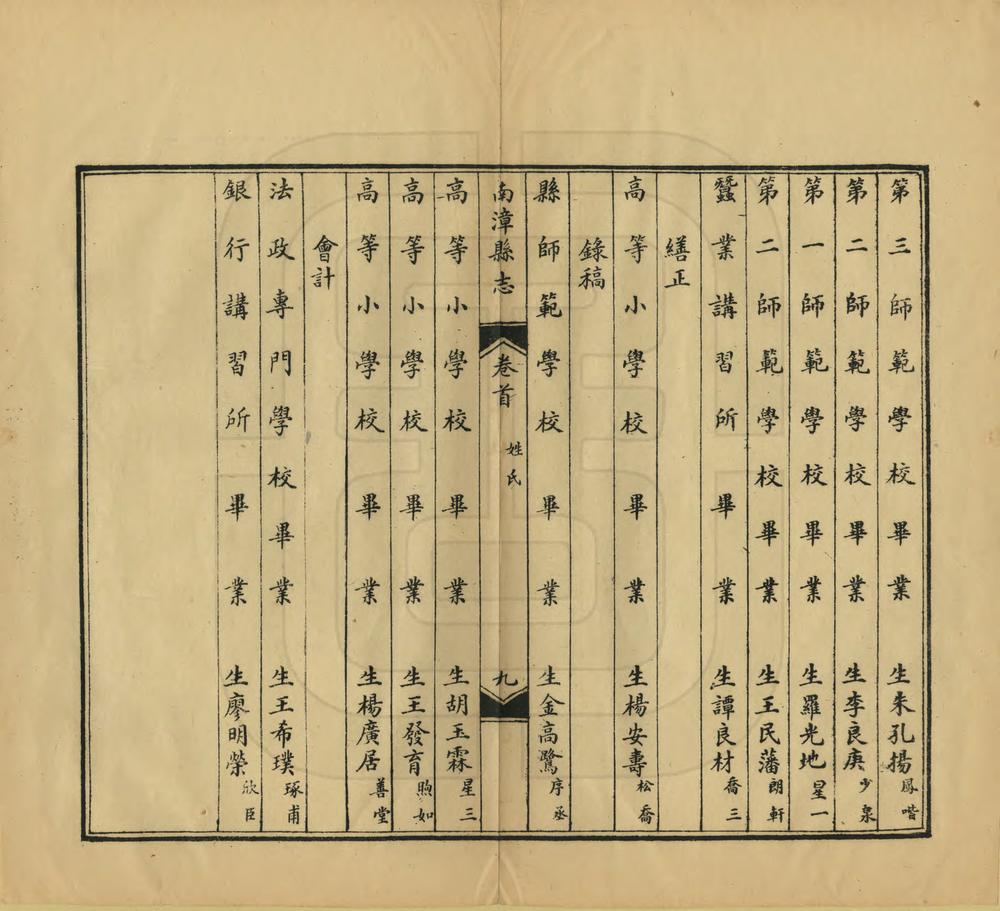 第三師範學校畢業生朱孔揚鳳喈
第二師範學校畢業生李良庚少泉
第一師範學校畢業生羅光地星一
第二師範學校畢業生王民藩朗軒
蠶業講習所畢業生譚良材喬三
繕正
高等小學校畢業生楊安壽松喬
錄稿
縣師範學校畢業生金高鷺序丞
南漳縣志 卷首 姓氏 九
高等小學校畢業生胡玉霖星三
高等小學校畢業生王發育煦如
高等小學校畢業生楊廣居善堂
會計
法政專門學校畢業生王希璞琢甫
銀行講習所畢業生廖明榮欣臣